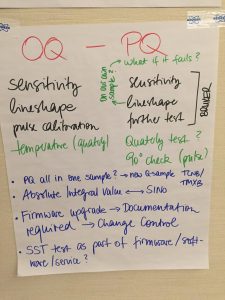 OQ - PQ
what if it fails?
on our own sample?
sensitivity
lineshape
pulse calibration
temperature (quately)
sensitivity
lineshape
further test
BRUKER
Quately test?
90° check (pulse)
• PQ all in one sample? → new Q-sample TCNB/TMXB
• Absolute Integral Value ↔ SINO
• Firmware upgrade → Documentation
required → Change Control
• SST test as part of firmware/soft-
ware/service?